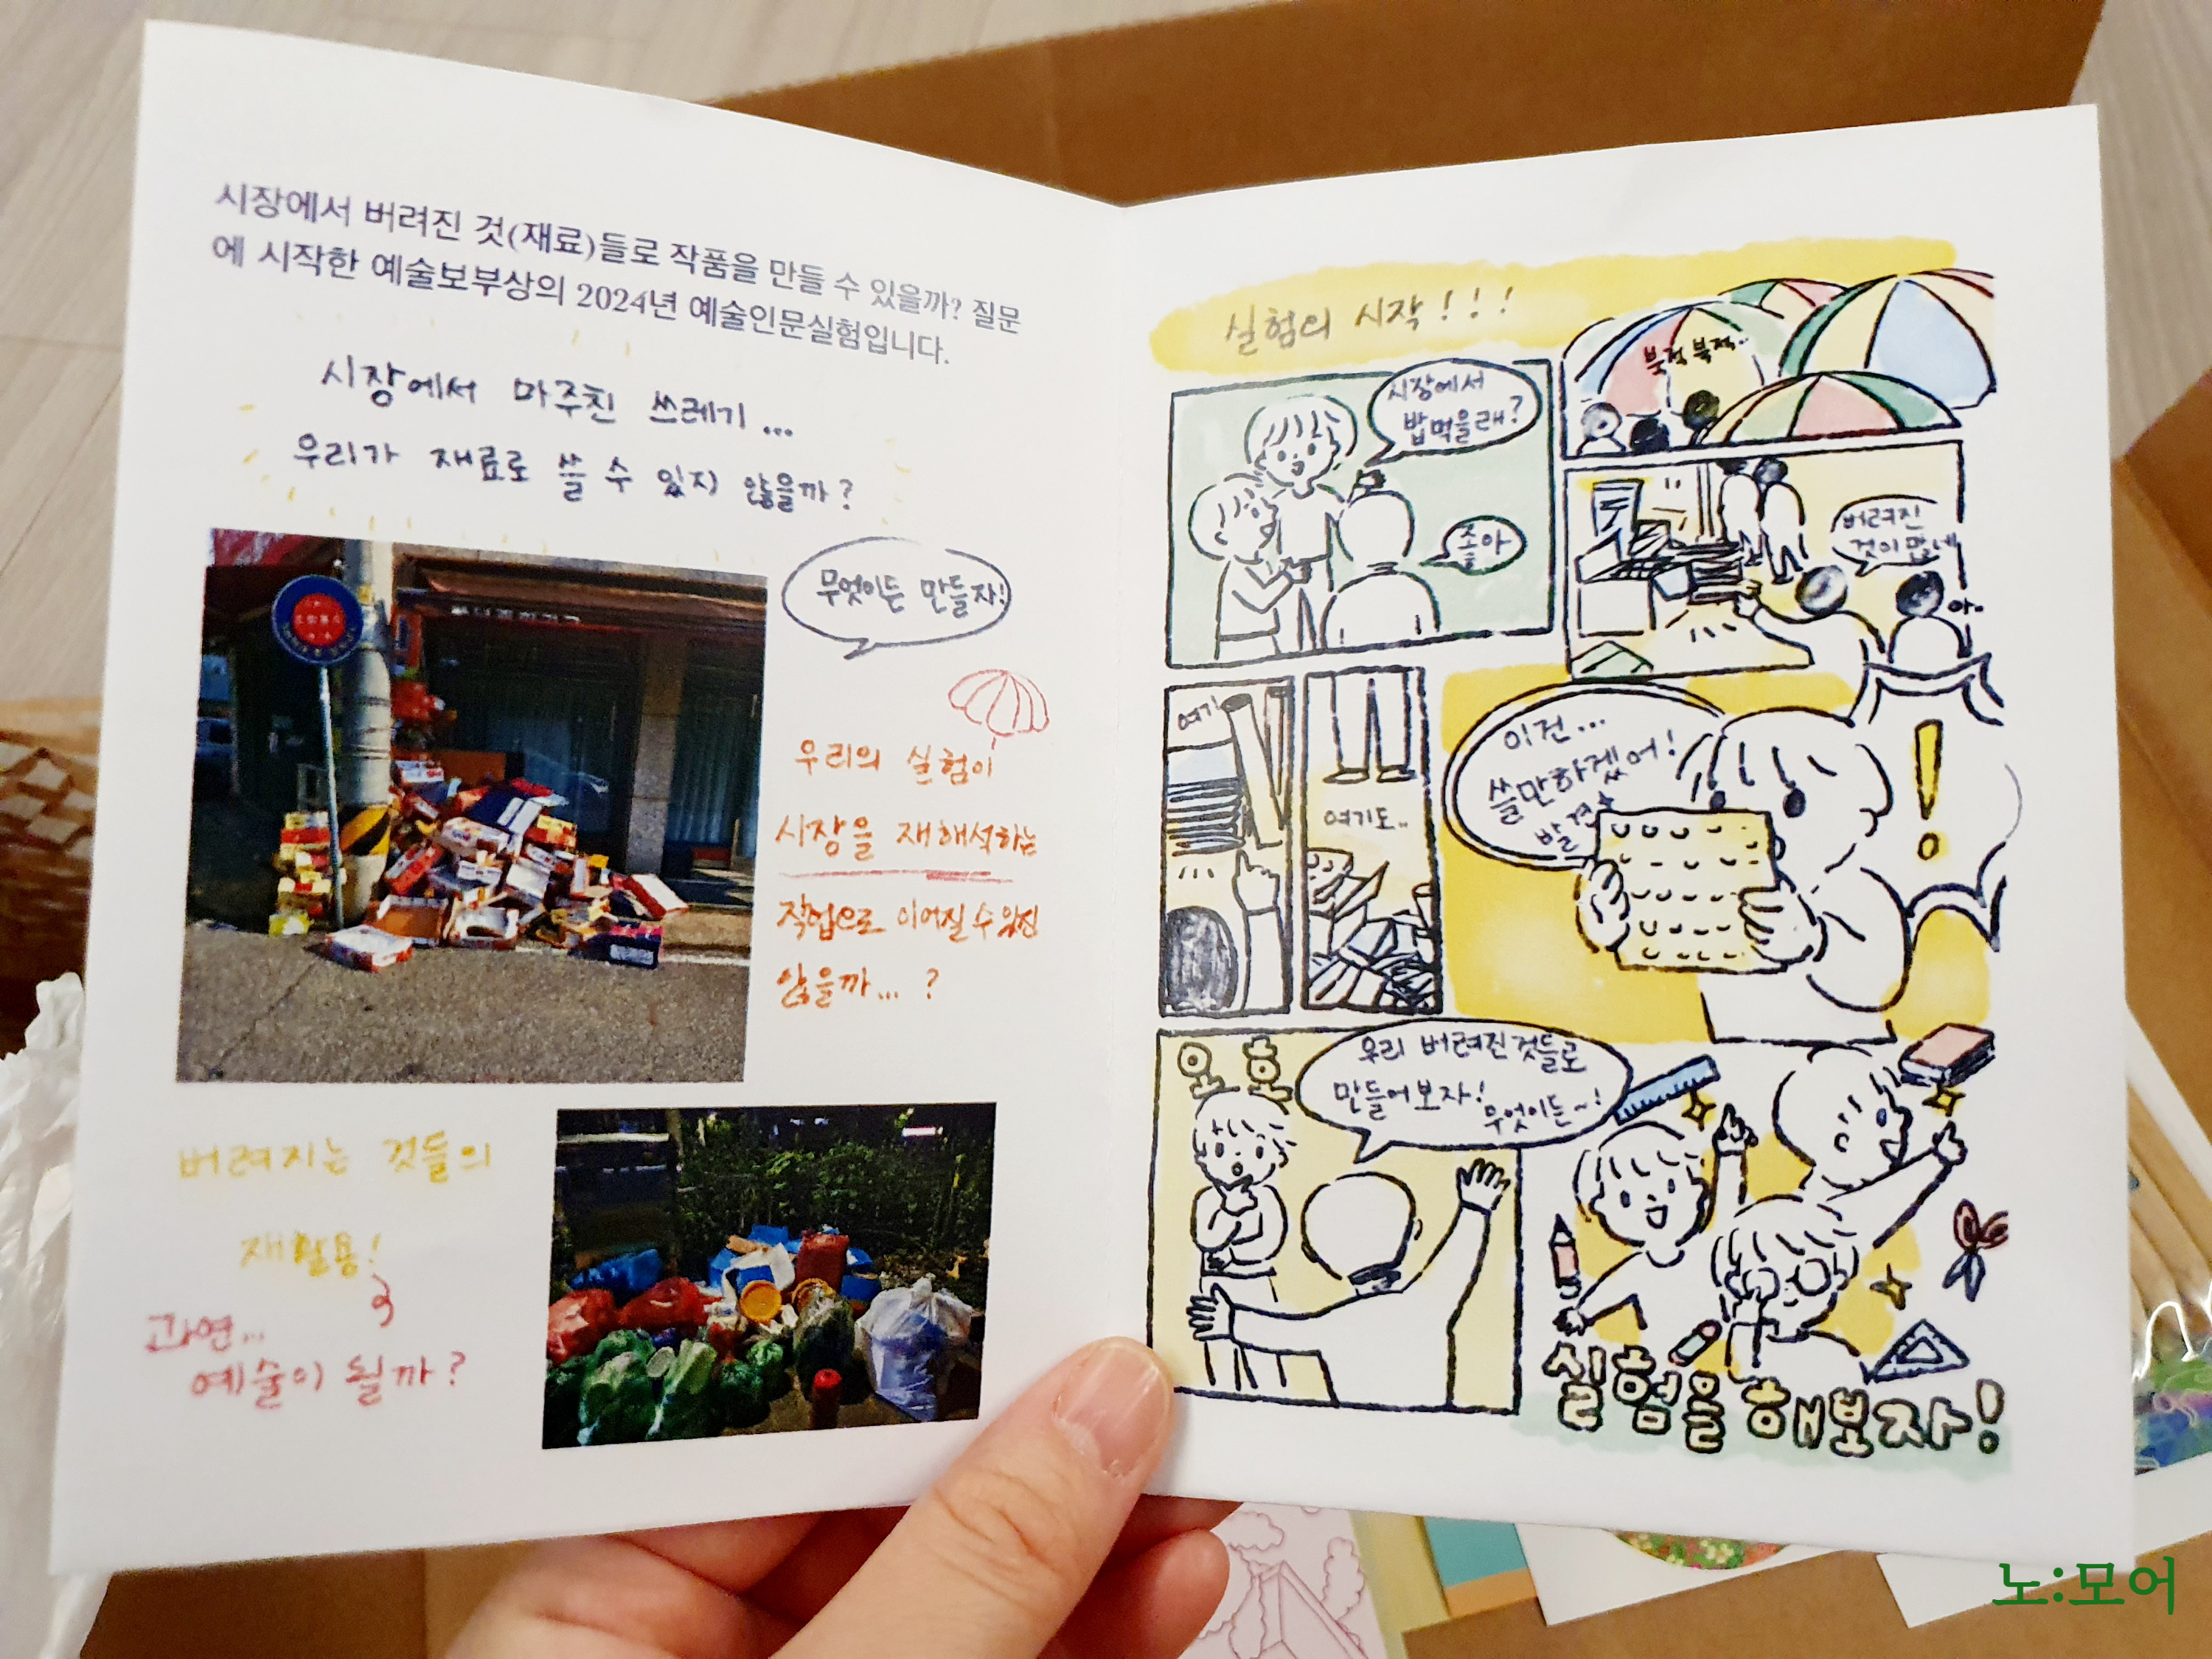 시장에서 버려진 것(재료)들로 작품을 만들 수 있을까? 질문
에 시작한 예술보부상의 2024년 예술인문실험입니다.
시장에서 마주친 쓰레기...
우리가 재료로 쓸 수 있지 않을까?
무엇이든 만들자!
우리의 실험이
시장을 재해석하는
작업으로 이어질 수 있진
않을까... ?
버려지는 것들의
재활용!
과연...
예술이 될까?
실험의 시작!!!
시장에서
밥먹을래?
좋아
북적북적..
버려진
것이 많네
아..
여기
여기도..
이건...
쓸만하겠어!
발견
오호
우리 버려진것들로
만들어보자!
무엇이든~!
실험을 해보자!
노:모어